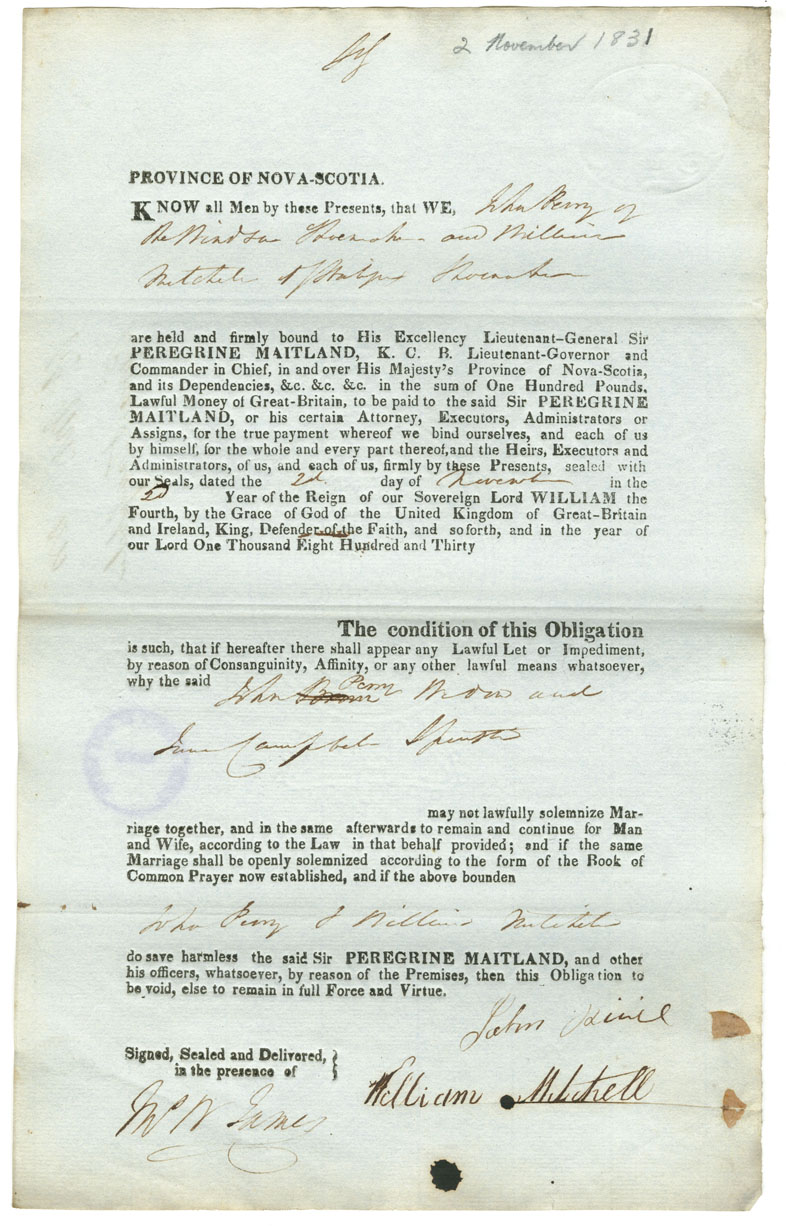 2 November 1831
PROVINCE OF NOVA-SCOTIA.
KNOW all Men by these Presents, that WE, John Perry of
Windsor Shoemaker and William
Mitchell of Shoemaker
are held and firmly bound to His Excellency Lieutenant-General Sir
PEREGRINE MAITLAND, K. C. B. Lieutenant-Governor and
Commander in Chief, in and over His Majesty's Province of Nova-Scotia,
and its Dependencies, &c. &c. &c. in the sum of One Hundred Pounds,
Lawful Money of Great-Britain, to be paid to the said Sir PEREGRINE
MAITLAND, or his certain Attorney, Executors, Administrators or
Assigns, for the true payment whereof we bind ourselves, and each of us
by himself, for the whole and every part thereof, and the Heirs, Executors and
Administrators, of us, and each of us, firmly by these Presents, sealed with
our Seals, dated the 2d. day of November in the
2d Year of the Reign of our Sovereign Lord WILLIAM the
Fourth, by the Grace of God of the United Kingdom of Great-Britain
and Ireland, King, Defender of the Faith, and soforth, and in the year of
our Lord One Thousand Eight Hundred and Thirty
The condition of this Obligation
is such, that if hereafter there shall appear any Lawful Let or Impediment,
by reason of Consanguinity, Affinity, or any other lawful means whatsoever,
why the said
John Perry Widower and
Campbell Spinster
may not lawfully solemnize Mar-
riage together, and in the same afterwards to remain and continue for Man
and Wife, according to the Law in that behalf provided; and if the same
Marriage shall be openly solemnized according to the form of the Book of
Common Prayer now established, and if the above bounden
John Perry & William Mitchell
do save harmless the said Sir PEREGRINE MAITLAND, and other
his officers, whatsoever, by reason of the Premises, then this Obligation to
be void, else to remain in full Force and Virtue.
John
Signed, Sealed and Delivered,
in the presence of
William Mitchell
James